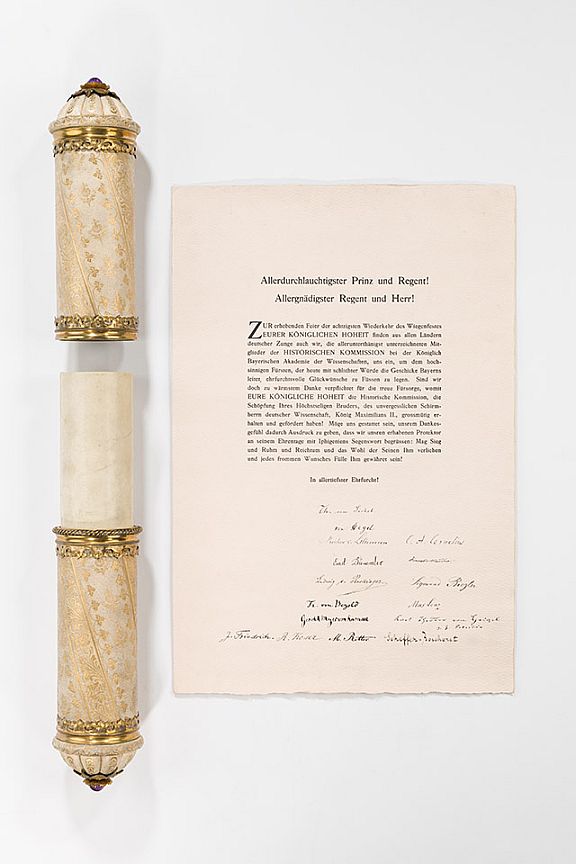 Allerdurchlauchtigster Prinz und Regent!
Allergnädigster Regent und Herr!
ZUR erhebenden Feier der achtzigsten Wiederkehr des Wiegenfestes
EURER KÖNIGLICHEN HOHEIT finden aus allen Ländern
deutscher Zunge auch wir, die allerunterthänigst unterzeichneten Mit-
glieder der HISTORISCHEN KOMMISSION bei der Königlich
Bayerischen Akademie der Wissenschaften, uns ein, um dem hoch-
sinnigen Fürsten, der heute mit schlichter Würde die Geschicke Bayerns
leitet, ehrfurchtsvolle Glückwünsche zu Füssen zu legen. Sind wir
doch zu wärmstem Danke verpflichtet für die treue Fürsorge, womit
EURE KÖNIGLICHE HOHEIT die Historische Kommission, die
Schöpfung Ihres Höchstseligen Bruders, des unvergesslichen Schirm-
herrn deutscher Wissenschaft, König Maximilians II., grossmütig er-
halten und gefördert haben! Möge uns gestattet sein, unsrem Dankes-
gefühl dadurch Ausdruck zu geben, dass wir unsren erhabenen Protektor
an seinem Ehrentage mit Iphigeniens Segenswort begrüssen: Mag Sieg
und Ruhm und Reichtum und das Wohl der Seinen Ihm verliehen
und jedes frommen Wunsches Fülle Ihm gewähret sein!
In allertiefster Ehrfurcht!
von Hegel
C. A. Cornelius
Emil Dümmler
Sigmund Riezler
Fr. von Bezold
J. Friedrich A. M. Ritter Scheffer-Boichorst